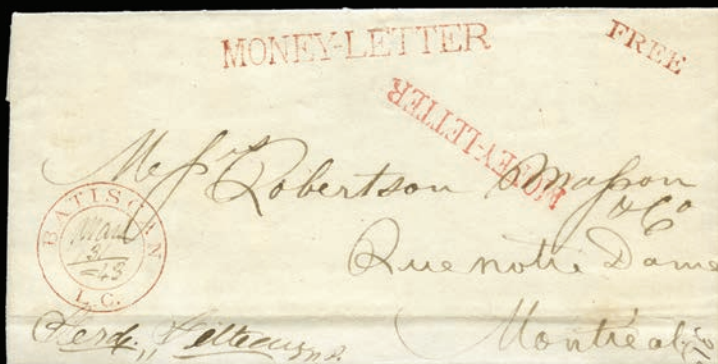 MONEY-LETTER
FREE
MONEY-LETTER
Messrs Robertson Masson
& Co
Rue notre Dame
Montréal
BATISCAN
Mar
31
43
L.C.